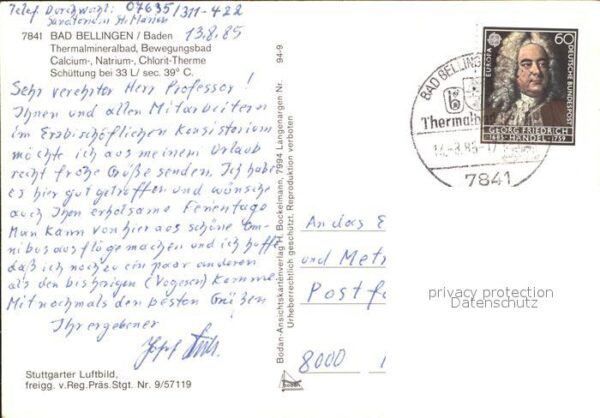 Telef. Durchwahl: 07635/311-422
Sanatorium St. Marien
13.8.85
7841 BAD BELLINGEN / Baden
Thermalmineralbad, Bewegungsbad
Calcium-, Natrium-, Chlorit-Therme
Schüttung bei 33 L/ sec. 39° C.
Sehr verehrter Herr Professor!
Ihnen und allen Mitarbeitern
im Erzbischöflichen Konsistorium
möchte ich aus meinem Urlaub
recht frohe Grüße senden. Ich habe
es hier gut getroffen und wünsche
auch Ihnen erholsame Ferientage
Man kann von hier aus schöne Om-
nibusausflüge machen und ich hoffe
daß ich noch zu ein paar anderen
als den bisherigen (Vogesen) komme.
Mit nochmals den besten Grüßen
Ihr ergebener
Josef
Stuttgarter Luftbild,
freigg. v.Reg.Präs.Stgt. Nr. 9/57119
94-9
Bodan-Ansichtskartenverlag H. Bockelmann, 7994 Langenargen. Nr.
Urheberrechtlich geschützt. Reproduktion verboten
BAD BELLINGEN
Thermalb
7841
EUROPA
60
DEUTSCHE BUNDESPOST
GEORG FRIEDRICH
1685 HÄNDEL 1759
An das E
und Met
Postf
8000
privacy protection
Datenschutz